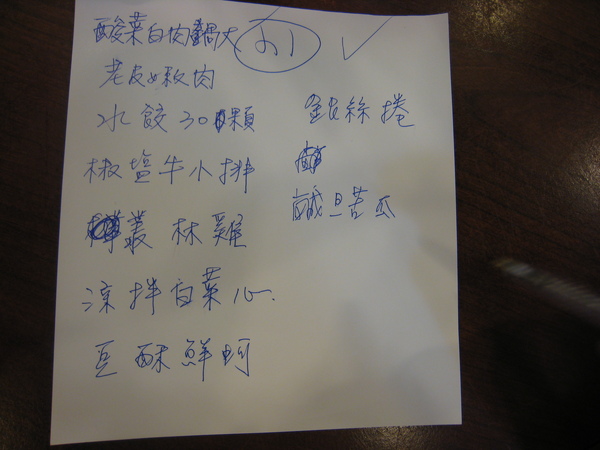 酸菜白肉鍋大
老皮嫩肉
水餃30顆
椒塩牛小排
叢林雞
涼拌白菜心
豆酥鮮蚵
銀絲捲
鹹旦苦瓜